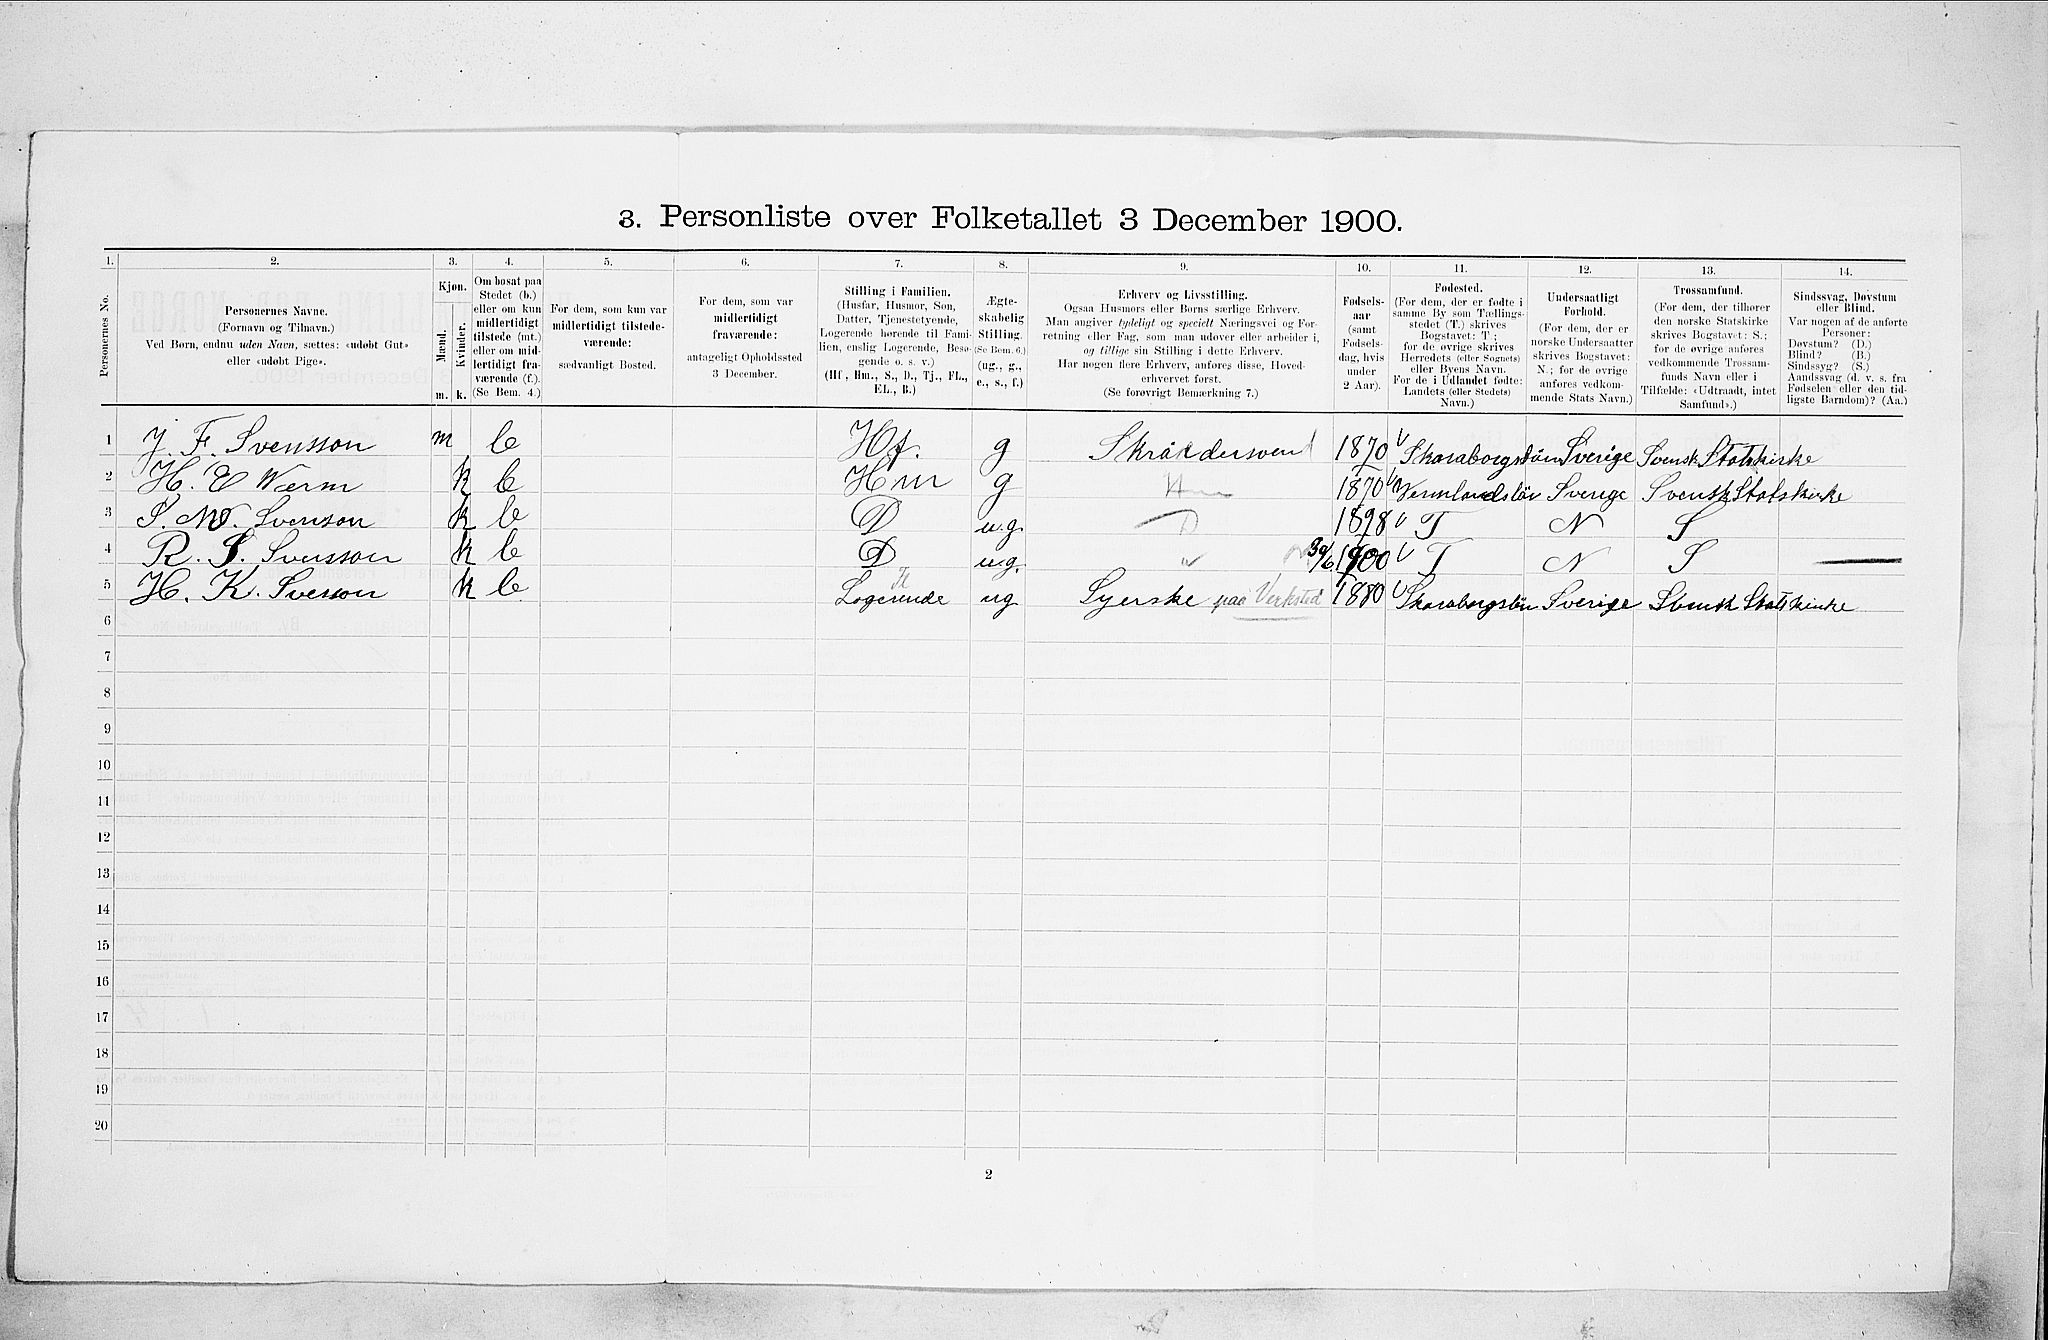 3. Personliste over Folketallet 3 December 1900.
1. 2. 3. 4. 5. 6. 7. 8. 9. 10. 11. 12. 13. 14.
Personernes No.
Personernes Navne.
(Fornavn og Tilnavn.)
Ved Børn, endnu uden Navn, sættes: «udøbt Gut»
eller «udøbt Pige».
Kjøn.
Mænd.
Kvinder.
m. k.
Om bosat paa
Stedet (b.)
eller om kun
midlertidigt
tilstede (mt.)
eller om mid-
lertidigt fra-
værende (f.).
(Se Bem. 4.)
For dem, som kun var
midlertidigt tilstede-
værende:
sædvanligt Bosted.
For dem, som var
midlertidigt
fraværende:
antageligt Opholdssted
3 December.
Stilling i Familien.
(Husfar, Husmor, Søn,
Datter, Tjenestetyende,
Logerende hørende til Fami-
lien, enslig Logerende, Besø-
gende o. s. v.)
(Hf, Hm., S., D., Tj., FL.,
EL., B.)
Ægte-
skabelig
Stilling.
(Se Bem. 6.)
(ug., g.,
e., s., f.)
Erhverv og Livsstilling.
Ogsaa Husmors eller Børns særlige Erhverv.
Man angiver tydeligt og specielt Næringsvei og For-
retning eller Fag, som man udøver eller arbeider i,
og tillige sin Stilling i dette Erhverv.
Har nogen flere Erhverv, anføres disse, Hoved-
erhvervet først.
(Se forøvrigt Bemærkning 7.)
Fødsels-
aar
(samt
Fødsels-
dag, hvis
under
2 Aar).
Fødested.
(For dem, der er fødte i
samme By som Tællings-
stedet (T.) skrives
Bogstavet: T;
for de øvrige skrives
Herredets (eller Sognets)
eller Byens Navn.
For de i Udlandet fødte:
Landets (eller Stedets)
Navn.)
Undersaatligt
Forhold.
(For dem, der er
norske Undersaatter
skrives Bogstavet:
N.; for de øvrige
anføres vedkom-
mende Stats Navn.)
Trossamfund.
(For dem, der tilhører
den norske Statskirke
skrives Bogstavet: S.;
for de øvrige anføres
vedkommende Trossam-
funds Navn eller i
Tilfælde: «Udtraadt, intet
Samfund».)
Sindssvag, Døvstum
eller Blind.
Var nogen af de anførte
Personer:
Døvstum? (D.)
Blind? (B.)
Sindssyg? (S.)
Aandssvag (d. v. s. fra
Fødselen eller den tid-
ligste Barndom)? (Aa.)
1 J. F. Svensson m b Hf. g Skräddersvend 1870 Skaraborgslän Sverige Svensk Statskirke
2 H. E Werm k b Hm g Hm 1870 Vermlandslän Sverige Svensk Statskirke
3 S. W. Svenson k b D u.g. D 1898 T N S
4 R. S. Svensson k b D u.g. " 30/6 1900 T N S
5 H. K. Svenson k b Logerende ug Syerske paa Verksted 1880 Skaraborgslän Sverige Svensk Statskirke
6
7
8
9
10
11
12
13
14
15
16
17
18
19
20
2